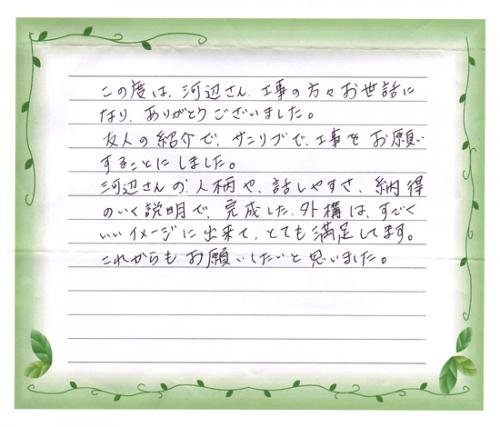 この度は、河辺さん、工事の方々お世話に
なり、ありがとうございました。
友人の紹介で、サンリブで、工事をお願い
することにしました。
河辺さんの、人柄や、話しやすさ、納得
のいく説明で、完成した、外構は、すごく
いいイメージに出来て、とても満足してます。
これからもお願いしたいと思いました。